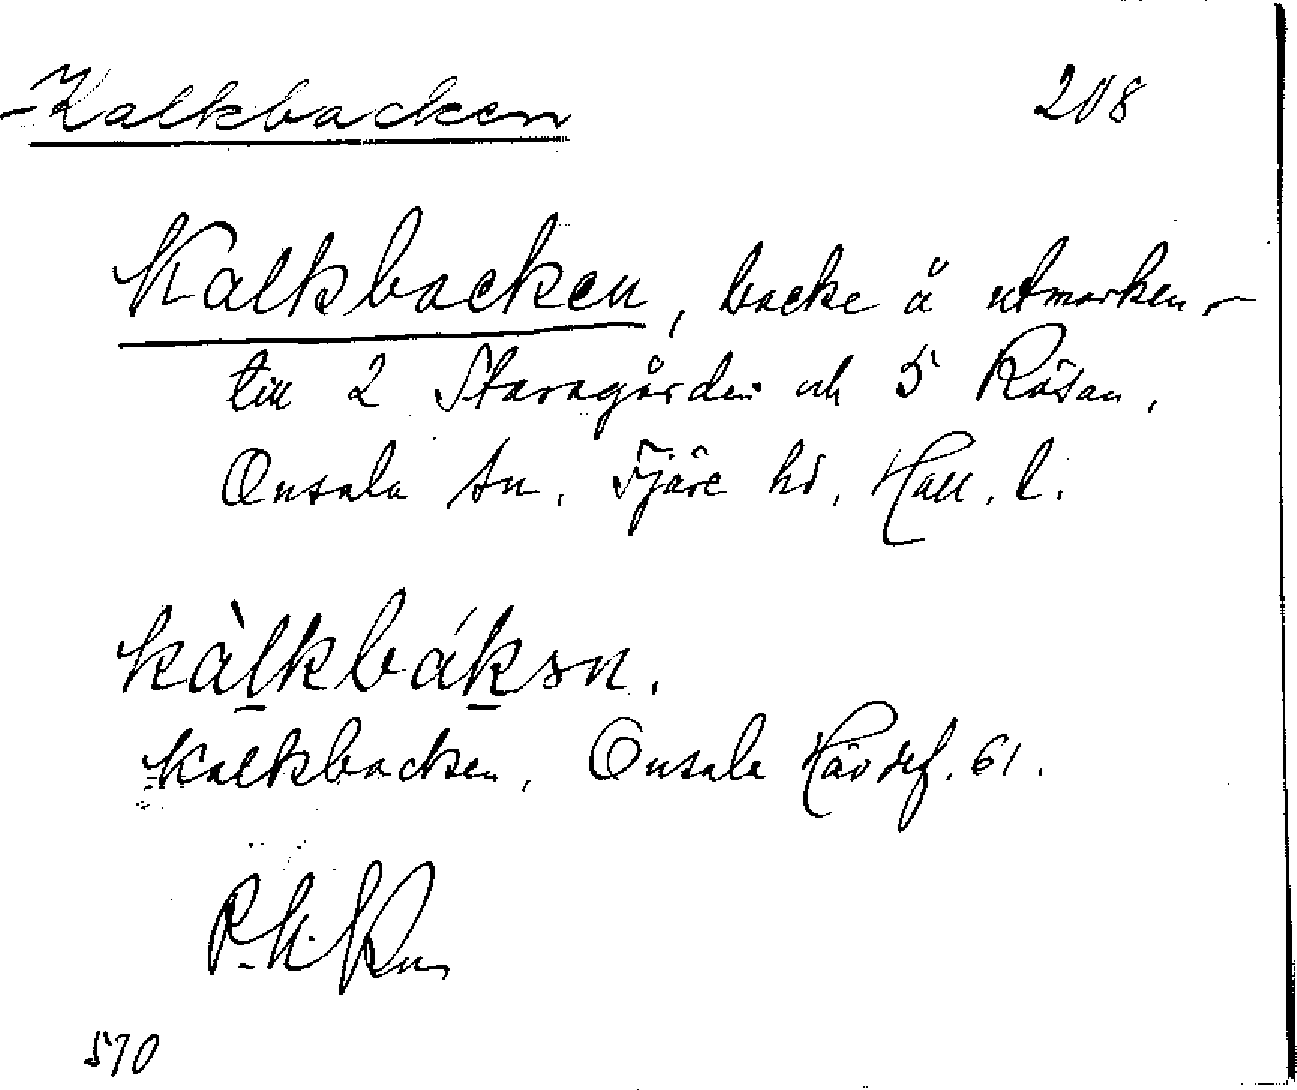 -Kalkbacken 208
Kalkbacken, backe å utmarken
till 2 Staragården och 5 Rösan,
Onsala sn. Fjäre hd, Hall. l.
kàlkbákən.
Kalkbacken, Onsala 61.
570